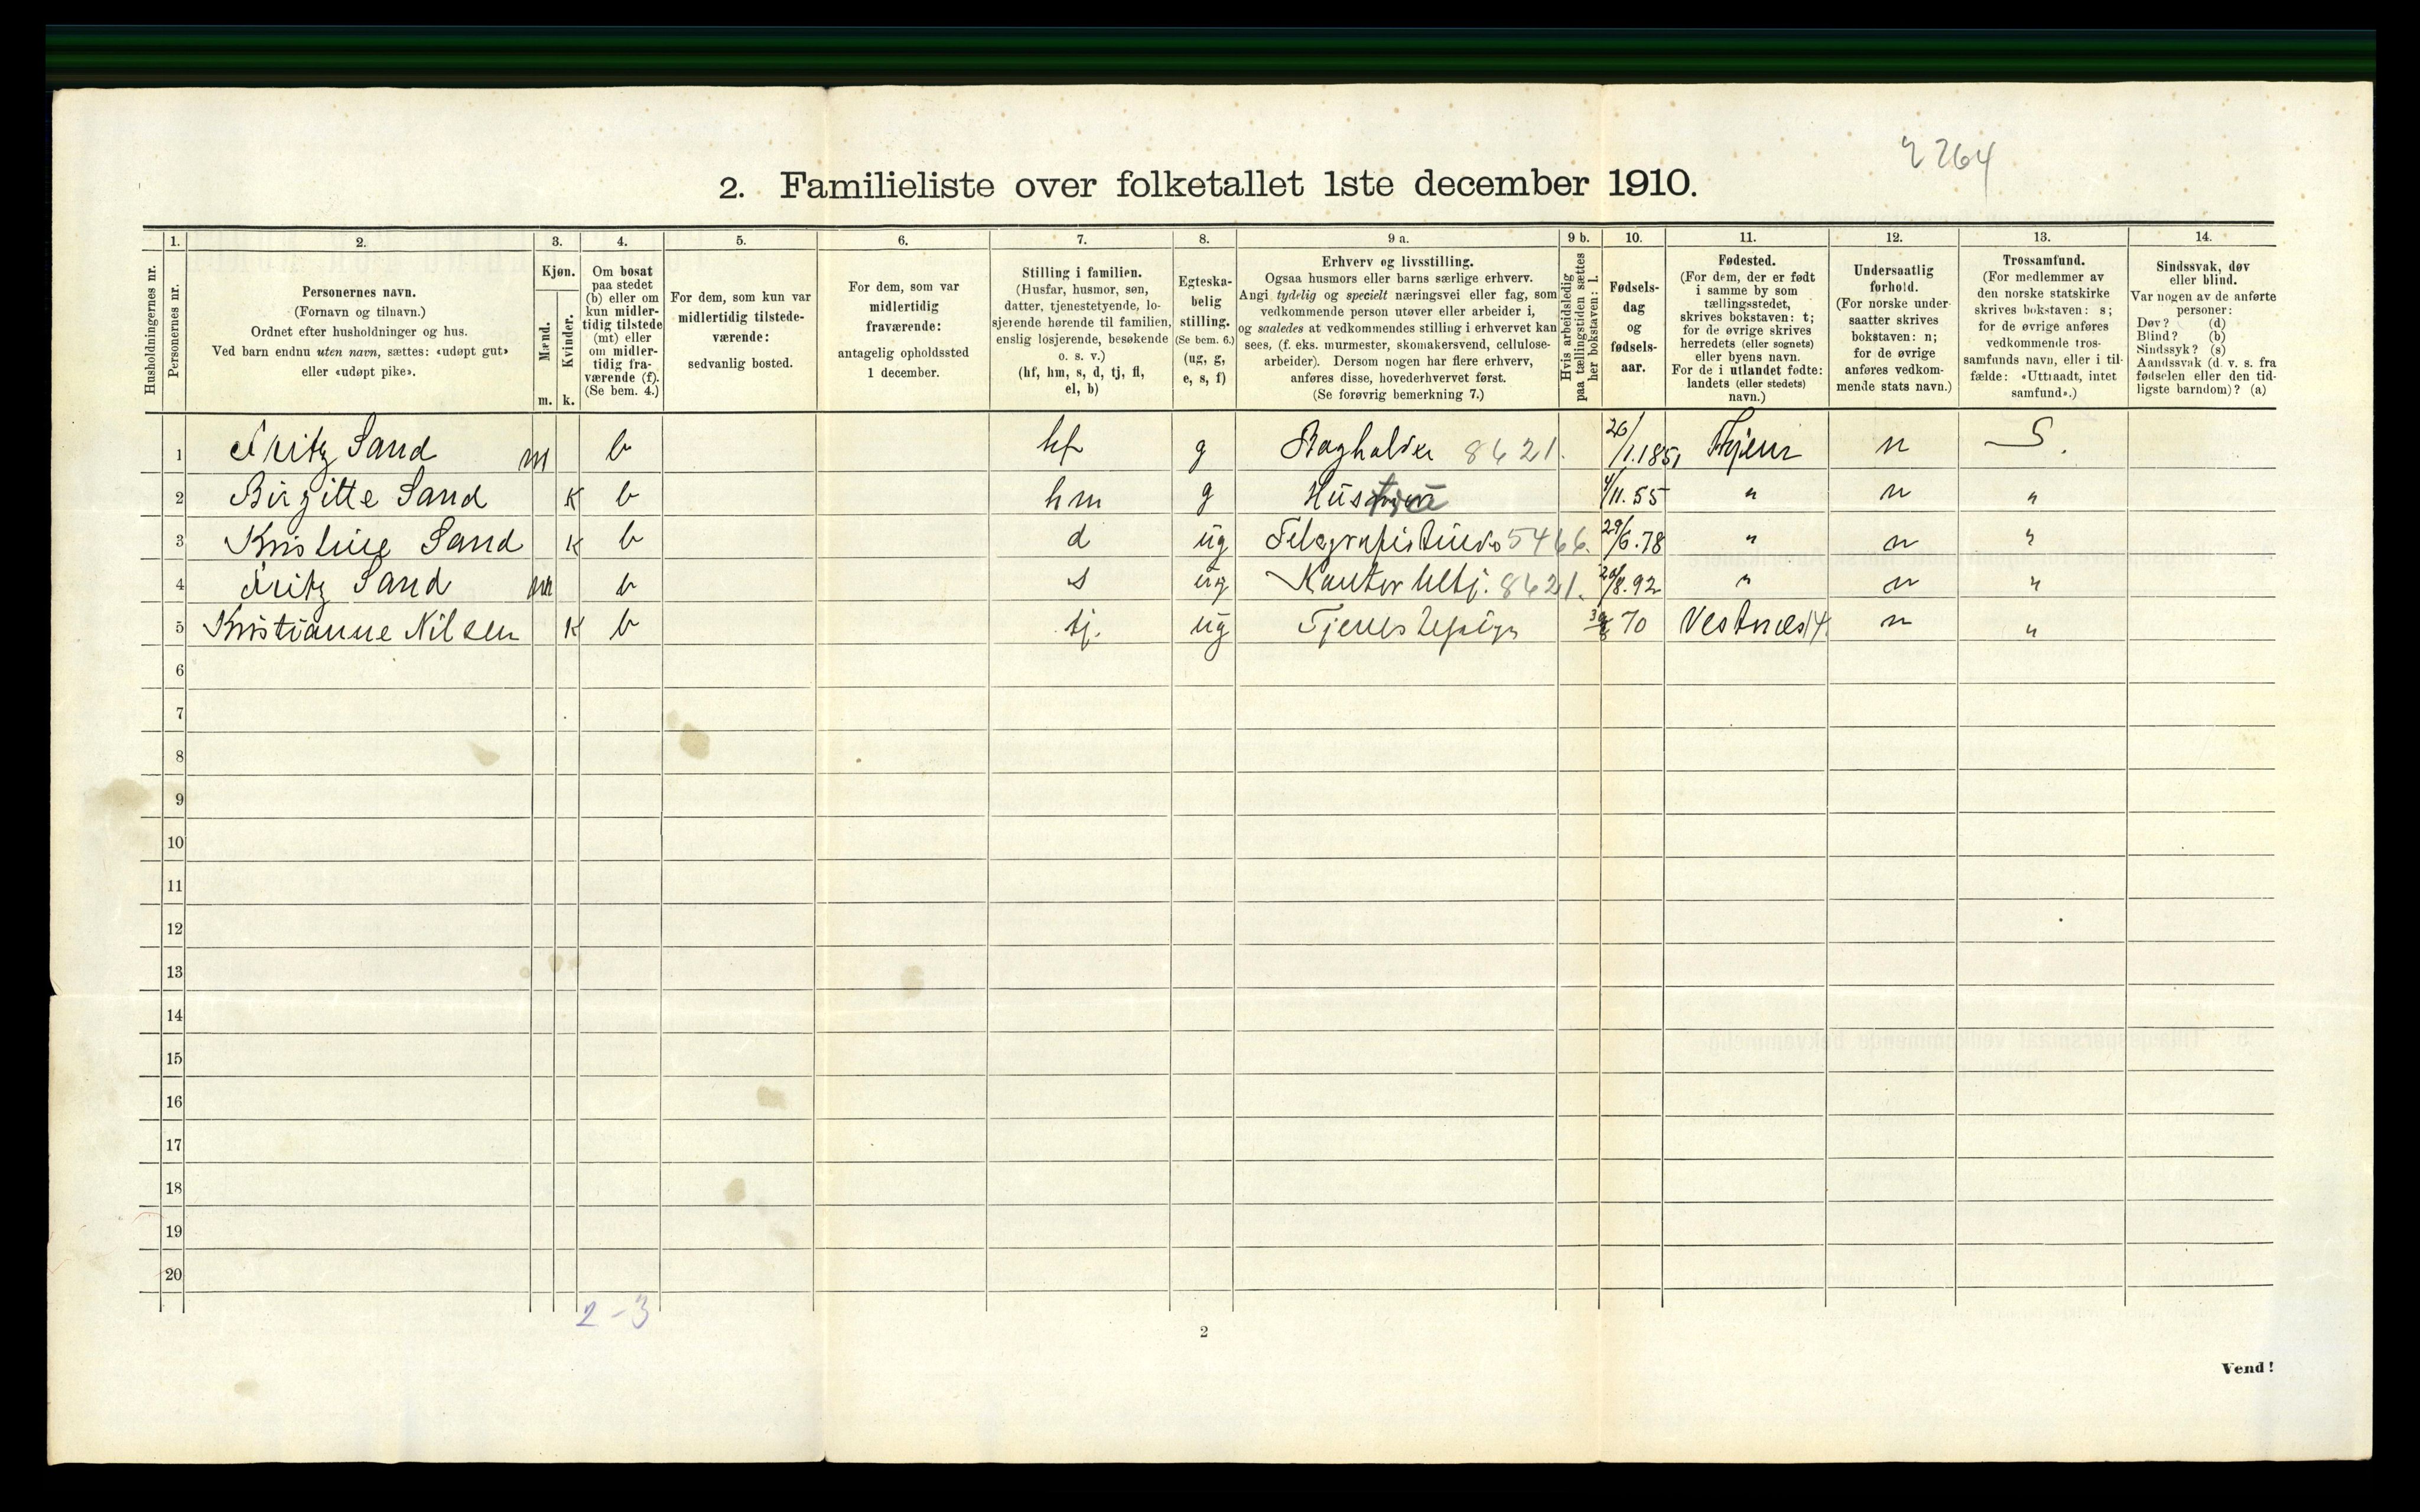 2264
2. Familieliste over folketallet 1ste december 1910.
1. 2. 3. 4. 5. 6. 7. 8. 9 a. 9 b. 10. 11. 12. 13. 14.
Husholdningernes nr.
Personernes nr.
Personernes navn.
(Fornavn og tilnavn.)
Ordnet efter husholdninger og hus.
Ved barn endnu uten navn, sættes: «udøpt gut»
eller «udøpt pike».
Kjøn.
Mænd.
Kvinder.
m. k.
Om bosat
paa stedet
(b) eller om
kun midler-
tidig tilstede
(mt) eller
om midler-
tidig fra-
værende (f).
(Se bem. 4.)
For dem, som kun var
midlertidig tilstede-
værende:
sedvanlig bosted.
For dem, som var
midlertidig
fraværende:
antagelig opholdssted
1 december.
Stilling i familien.
(Husfar, husmor, søn,
datter, tjenestetyende, lo-
sjerende hørende til familien,
enslig losjerende, besøkende
o. s. v.)
(hf, hm, s, d, tj, fl,
el, b)
Egteska-
belig
stilling.
(Se bem. 6.)
(ug, g,
e, s, f)
Erhverv og livsstilling.
Ogsaa husmors eller barns særlige erhverv.
Angi tydelig og specielt næringsvei eller fag, som
vedkommende person utøver eller arbeider i,
og saaledes at vedkommendes stilling i erhvervet kan
sees, (f. eks. murmester, skomakersvend, cellulose-
arbeider). Dersom nogen har flere erhverv,
anføres disse, hovederhvervet først.
(Se forøvrig bemerkning 7.)
Hvis arbeidsledig
paa tællingstiden sættes
her bokstaven: l.
Fødsels-
dag
og
fødsels-
aar.
Fødested.
(For dem, der er født
i samme by som
tællingsstedet,
skrives bokstaven: t;
for de øvrige skrives
herredets (eller sognets)
eller byens navn.
For de i utlandet fødte:
landets (eller stedets)
navn.)
Undersaatlig
forhold.
(For norske under-
saatter skrives
bokstaven: n;
for de øvrige
anføres vedkom-
mende stats navn.)
Trossamfund.
(For medlemmer av
den norske statskirke
skrives bokstaven: s;
for de øvrige anføres
vedkommende tros-
samfunds navn, eller i til-
fælde: «Uttraadt, intet
samfund».)
Sindssvak, døv
eller blind.
Var nogen av de anførte
personer:
Døv? (d)
Blind? (b)
Sindssyk? (s)
Aandssvak (d. v. s. fra
fødselen eller den tid-
ligste barndom)? (a)
1 Fritz Sand m b hf g Bogholder 8421. 26/1.1851 Hjem n S.
2 Birgitte Sand k b hm g Hustru 4/11.55 " n "
3 Kristine Sand k b d ug Telegrafistinde 5466. 29/6.78 " n "
4 Fritz Sand m b s ug Kontorbetj. 8421. /8.92 " n "
5 Kristianne Nilsen k b tj. ug Tjenestepige 70 Vestnæs 14 n "
6
7
8
9
10
11
12
13
14
15
16
17
18
19
20
2-3
2
Vend!